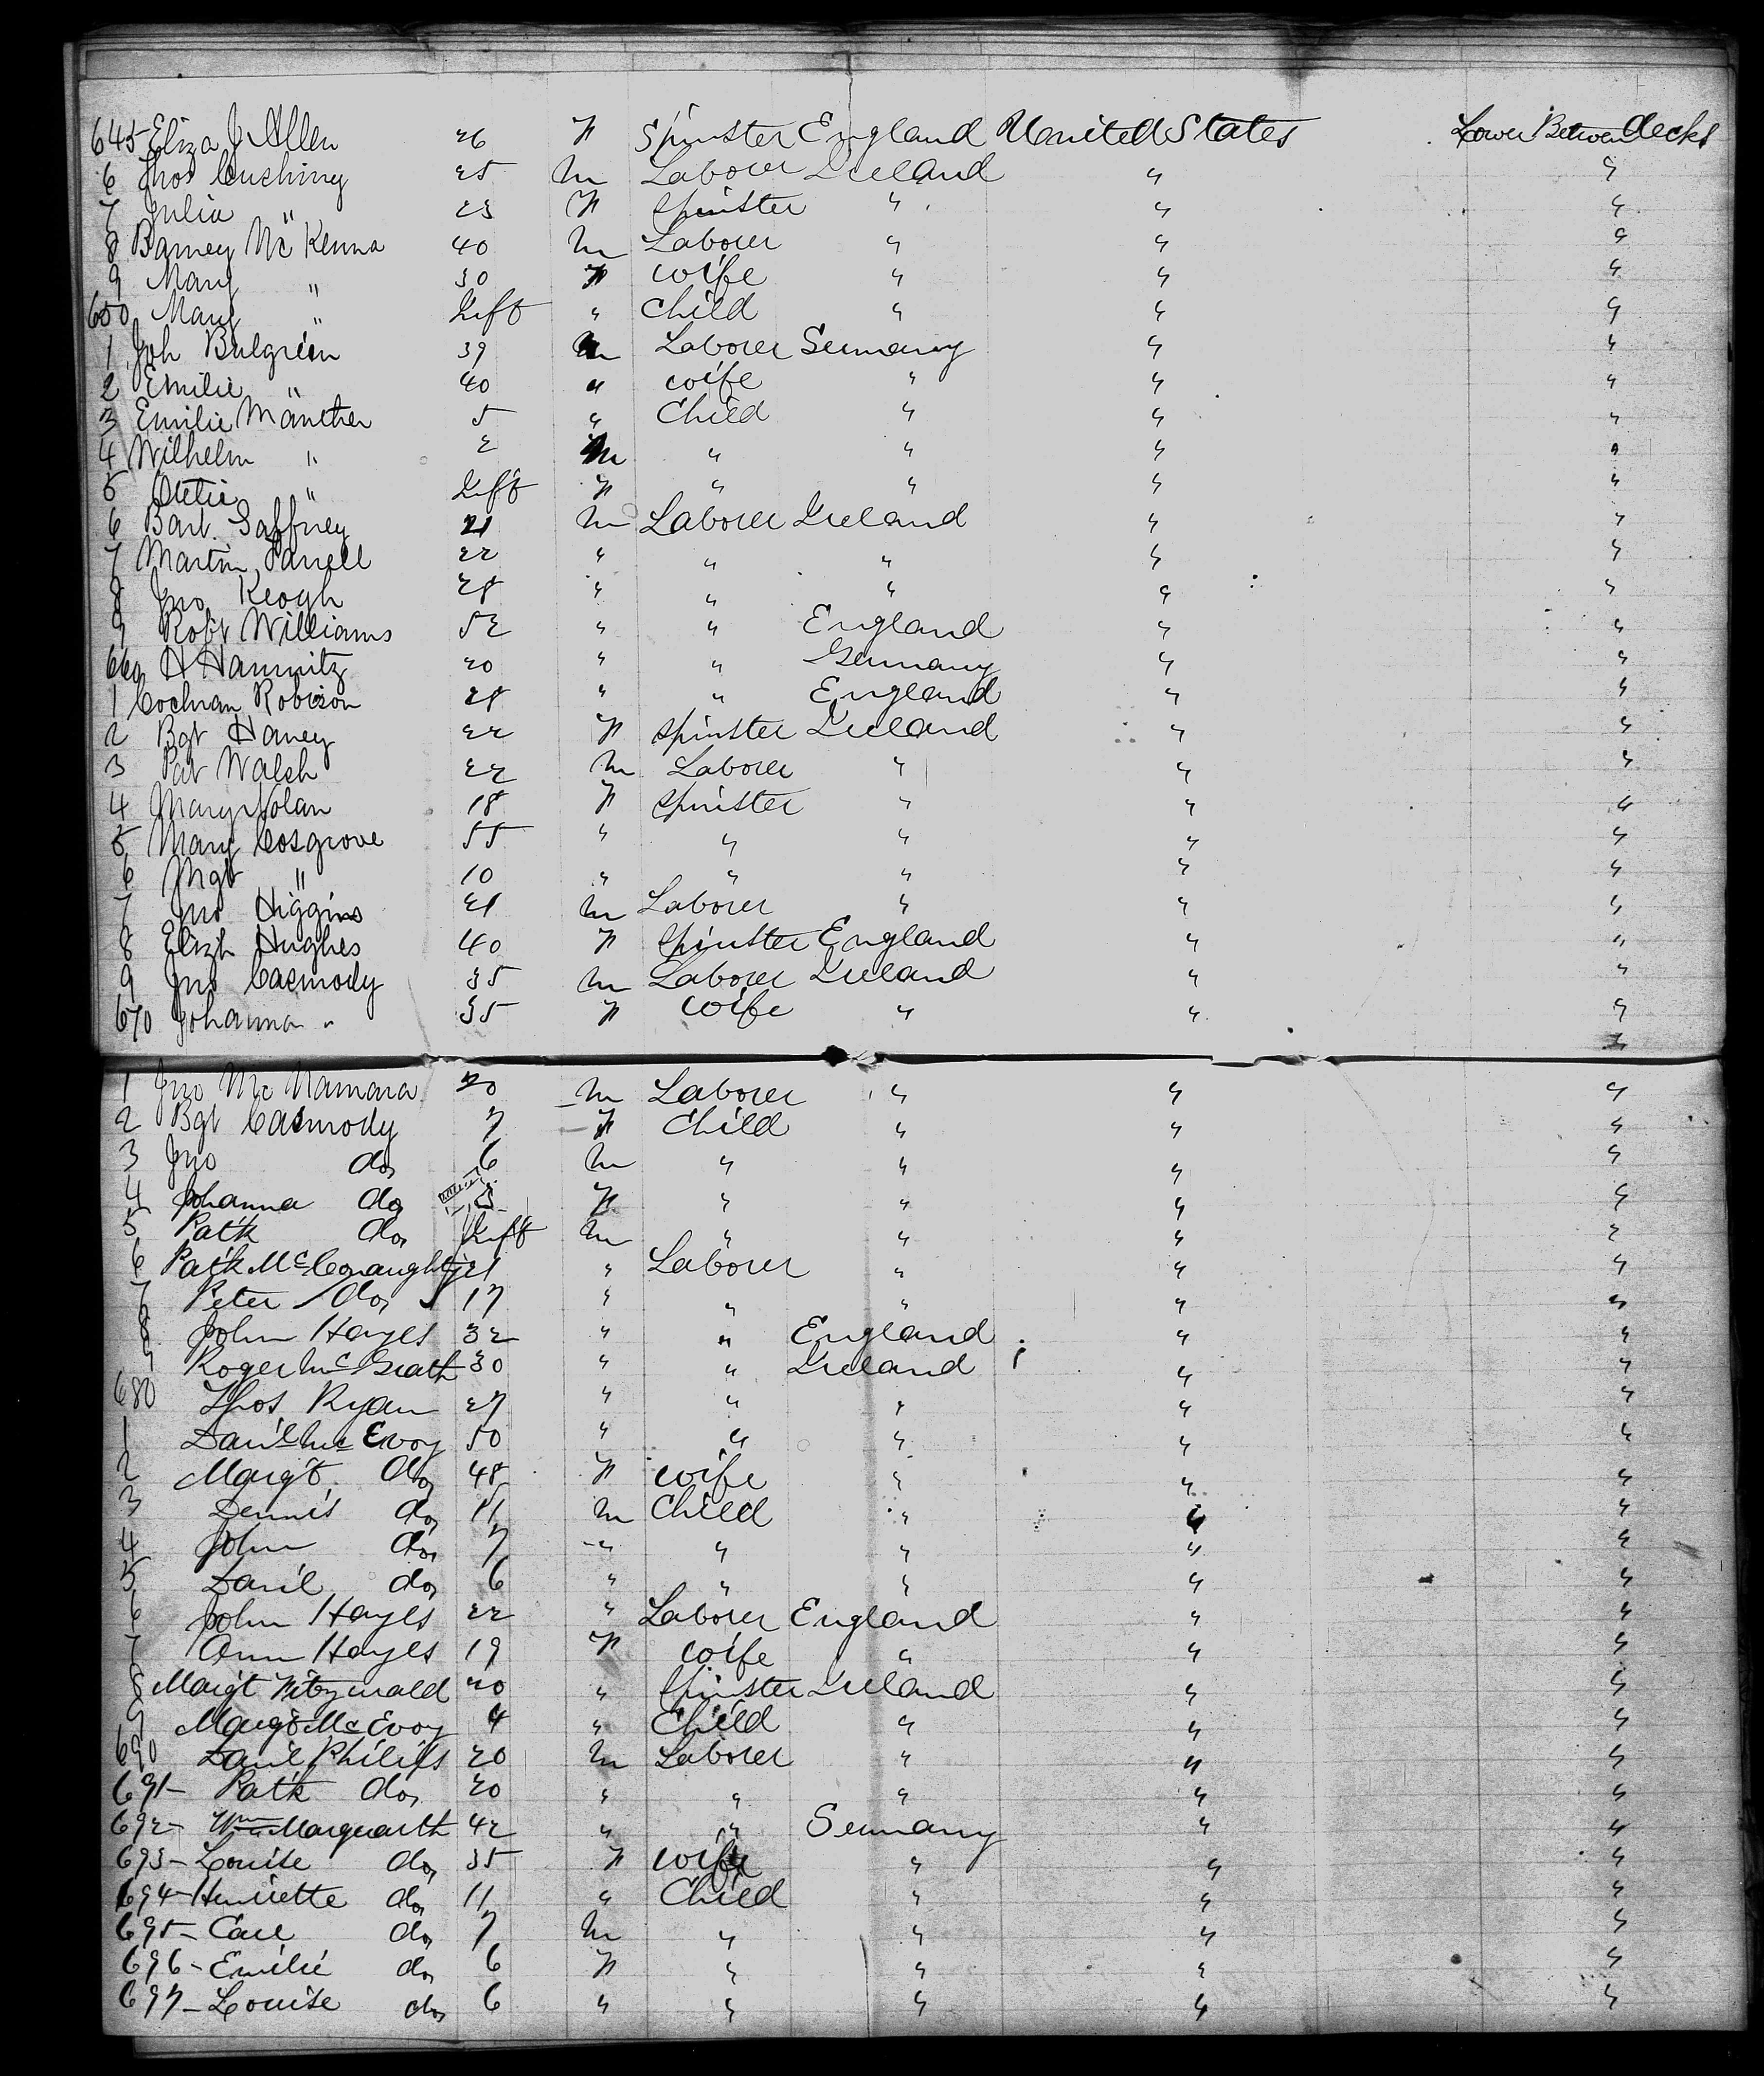 645 Eliza J Allen 26 F Spinster England United States Lower Between decks
6 Thos Cushing 25 M Laborer Ireland " "
7 Julia " 23 F Spinster " " "
8 Barney McKenna 40 M Laborer " " "
9 Mary " 30 F wife " " "
650 Mary " Inft " Child " " "
1 Joh Bulgrien 39 M Laborer Germany " "
2 Emilie " 40 " wife " " "
3 Emilie Manther 5 " Child " " "
4 Wilhelm " 2 M " " " "
5 " Inft F " " " "
6 Bart. Gaffney 21 M Laborer Ireland " "
7 Martin Farrell 22 " " " " "
8 Jno Keogh 28 " " " " "
9 Robt Williams 52 " " England " "
660 H Hamnitz 20 " " Germany " "
1 Cochran Robison 28 " " England " "
2 Bgt Haney 22 F Spinster Ireland " "
3 Pat Walsh 22 M Laborer " " "
4 Mary Nolan 18 F Spinster " " "
5 Mary Cosgrove 55 " " " " "
6 Mgt " 10 " " " " "
7 Jno Higgins 21 M Laborer " " "
8 Elizh Hughes 40 F Spinster England " "
9 Jno Casmody 35 M Laborer Ireland " "
670 Johanna " 35 F wife " " "
1 Jno McNamara 20 M Laborer " " "
2 Bgt Casmody 7 F Child " " "
3 Jno do 6 M " " " "
4 Johanna do 5 F " " " "
5 Patk do Inft M " " " "
6 Patk McConaughty 21 " Laborer " " "
7 Peter do 17 " " " " "
8 John Hayes 32 " " England " "
9 Roger McGrath 30 " " Ireland " "
680 Thos Ryan 27 " " " " "
1 Danl McEvoy 50 " " " " "
2 Margt do 48 F wife " " "
3 Dennis do 11 M Child " " "
4 John do 7 " " " " "
5 Danl do 6 " " " " "
6 John Hayes 22 " Laborer England " "
7 Ann Hayes 19 F wife " " "
8 Margt Fitzgerald 20 " Spinster Ireland " "
9 Margt McEvoy 4 " Child " " "
690 Danl Philips 20 M Laborer " " "
691- Patk do 20 " " " " "
692- Wm Marquarth 42 " " Germany " "
693- Louise do 35 F wife " " "
694- Henriette do 11 " Child " " "
695- Carl do 7 M " " " "
696- Emilie do 6 F " " " "
697- Louise do 6 " " " " "